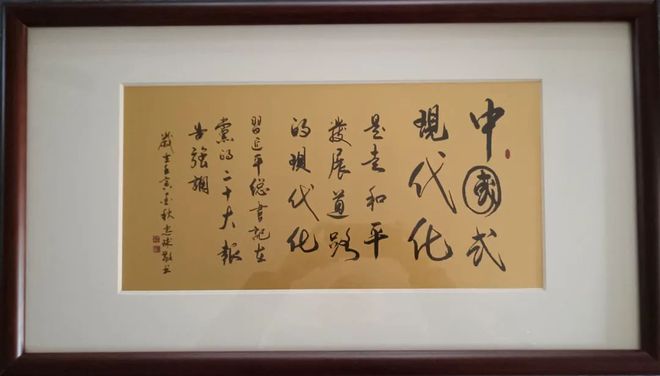 中國式
現代化
是走和平
發展道路
的現代化
習近平總書記在
黨的二十大報
告強調
歲在壬寅金秋忠林敬書